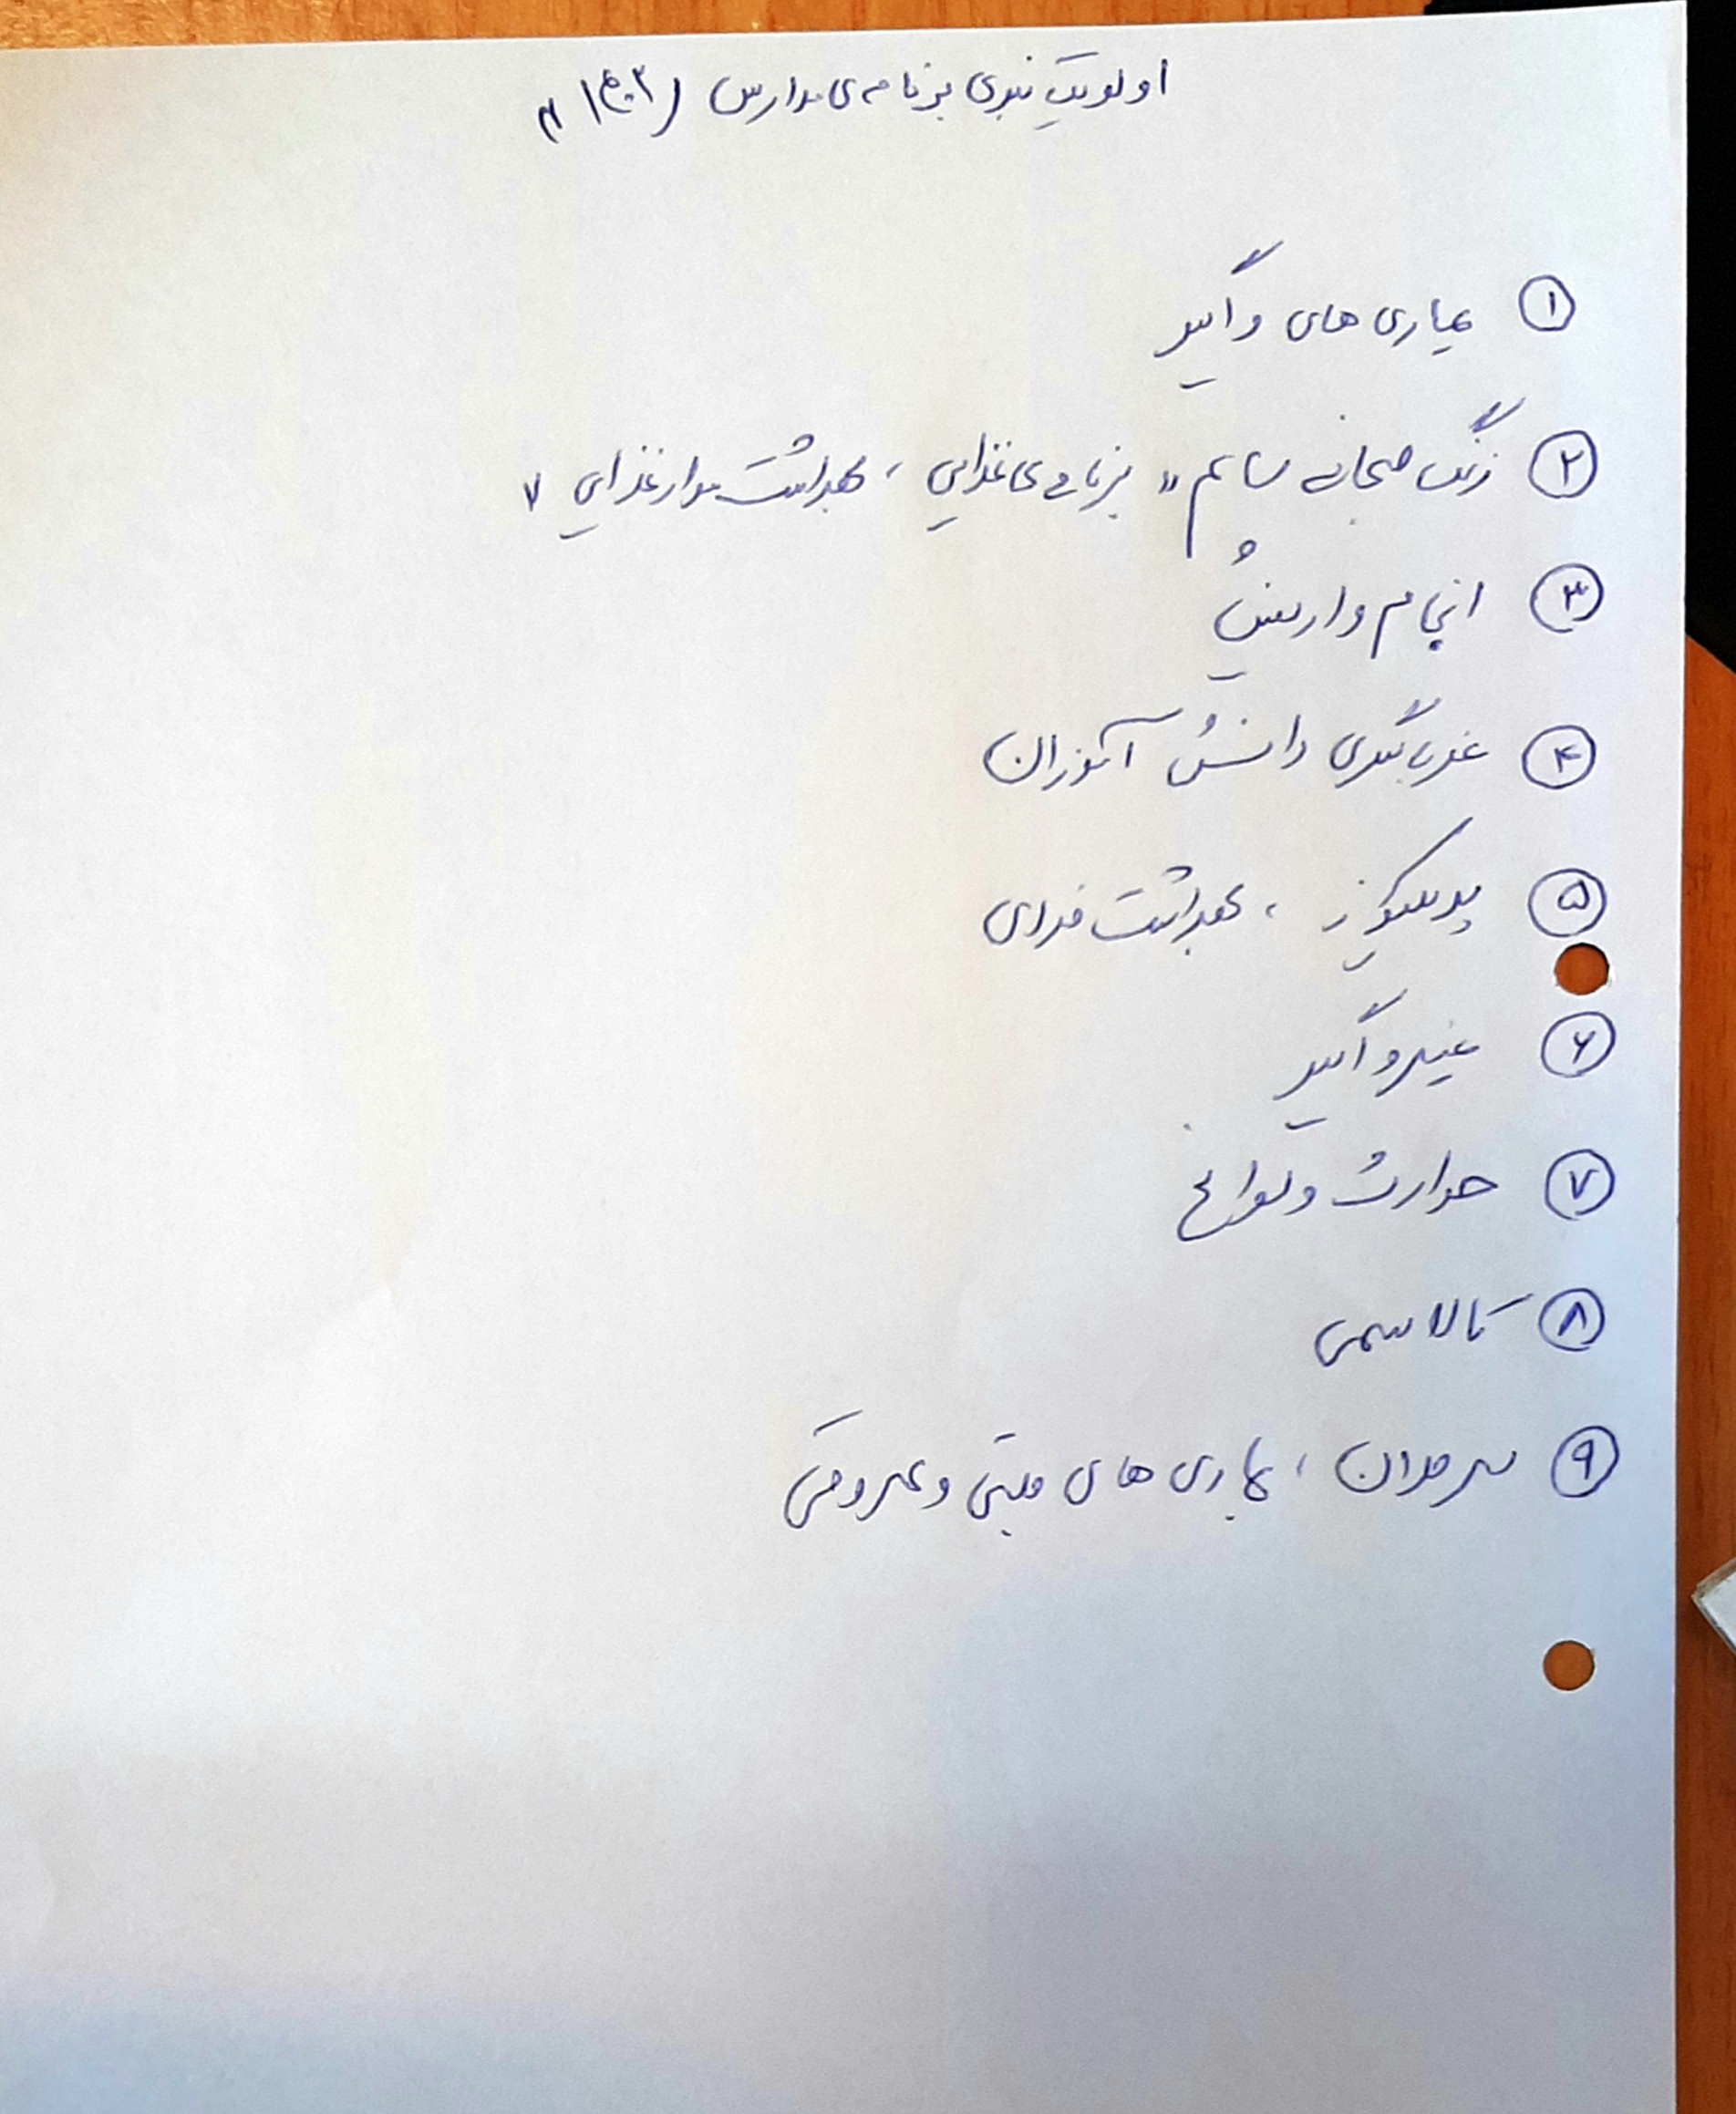 اولویت بندی برنامه ی مدارس
① بیماری های واگیر
② زنگ صبحانه سالم " برنامه ی غذایی ، بهداشت مواد غذایی ۷
③ انجام واریش
④ غربالگری دانش آموزان
⑤ پدیکولوز ، بهداشت فردی
⑥ غیرواگیر
⑦ حوادث و سوانح
⑧ کالا سمی
⑨ سرطان ، بیماری های قلبی و عروقی